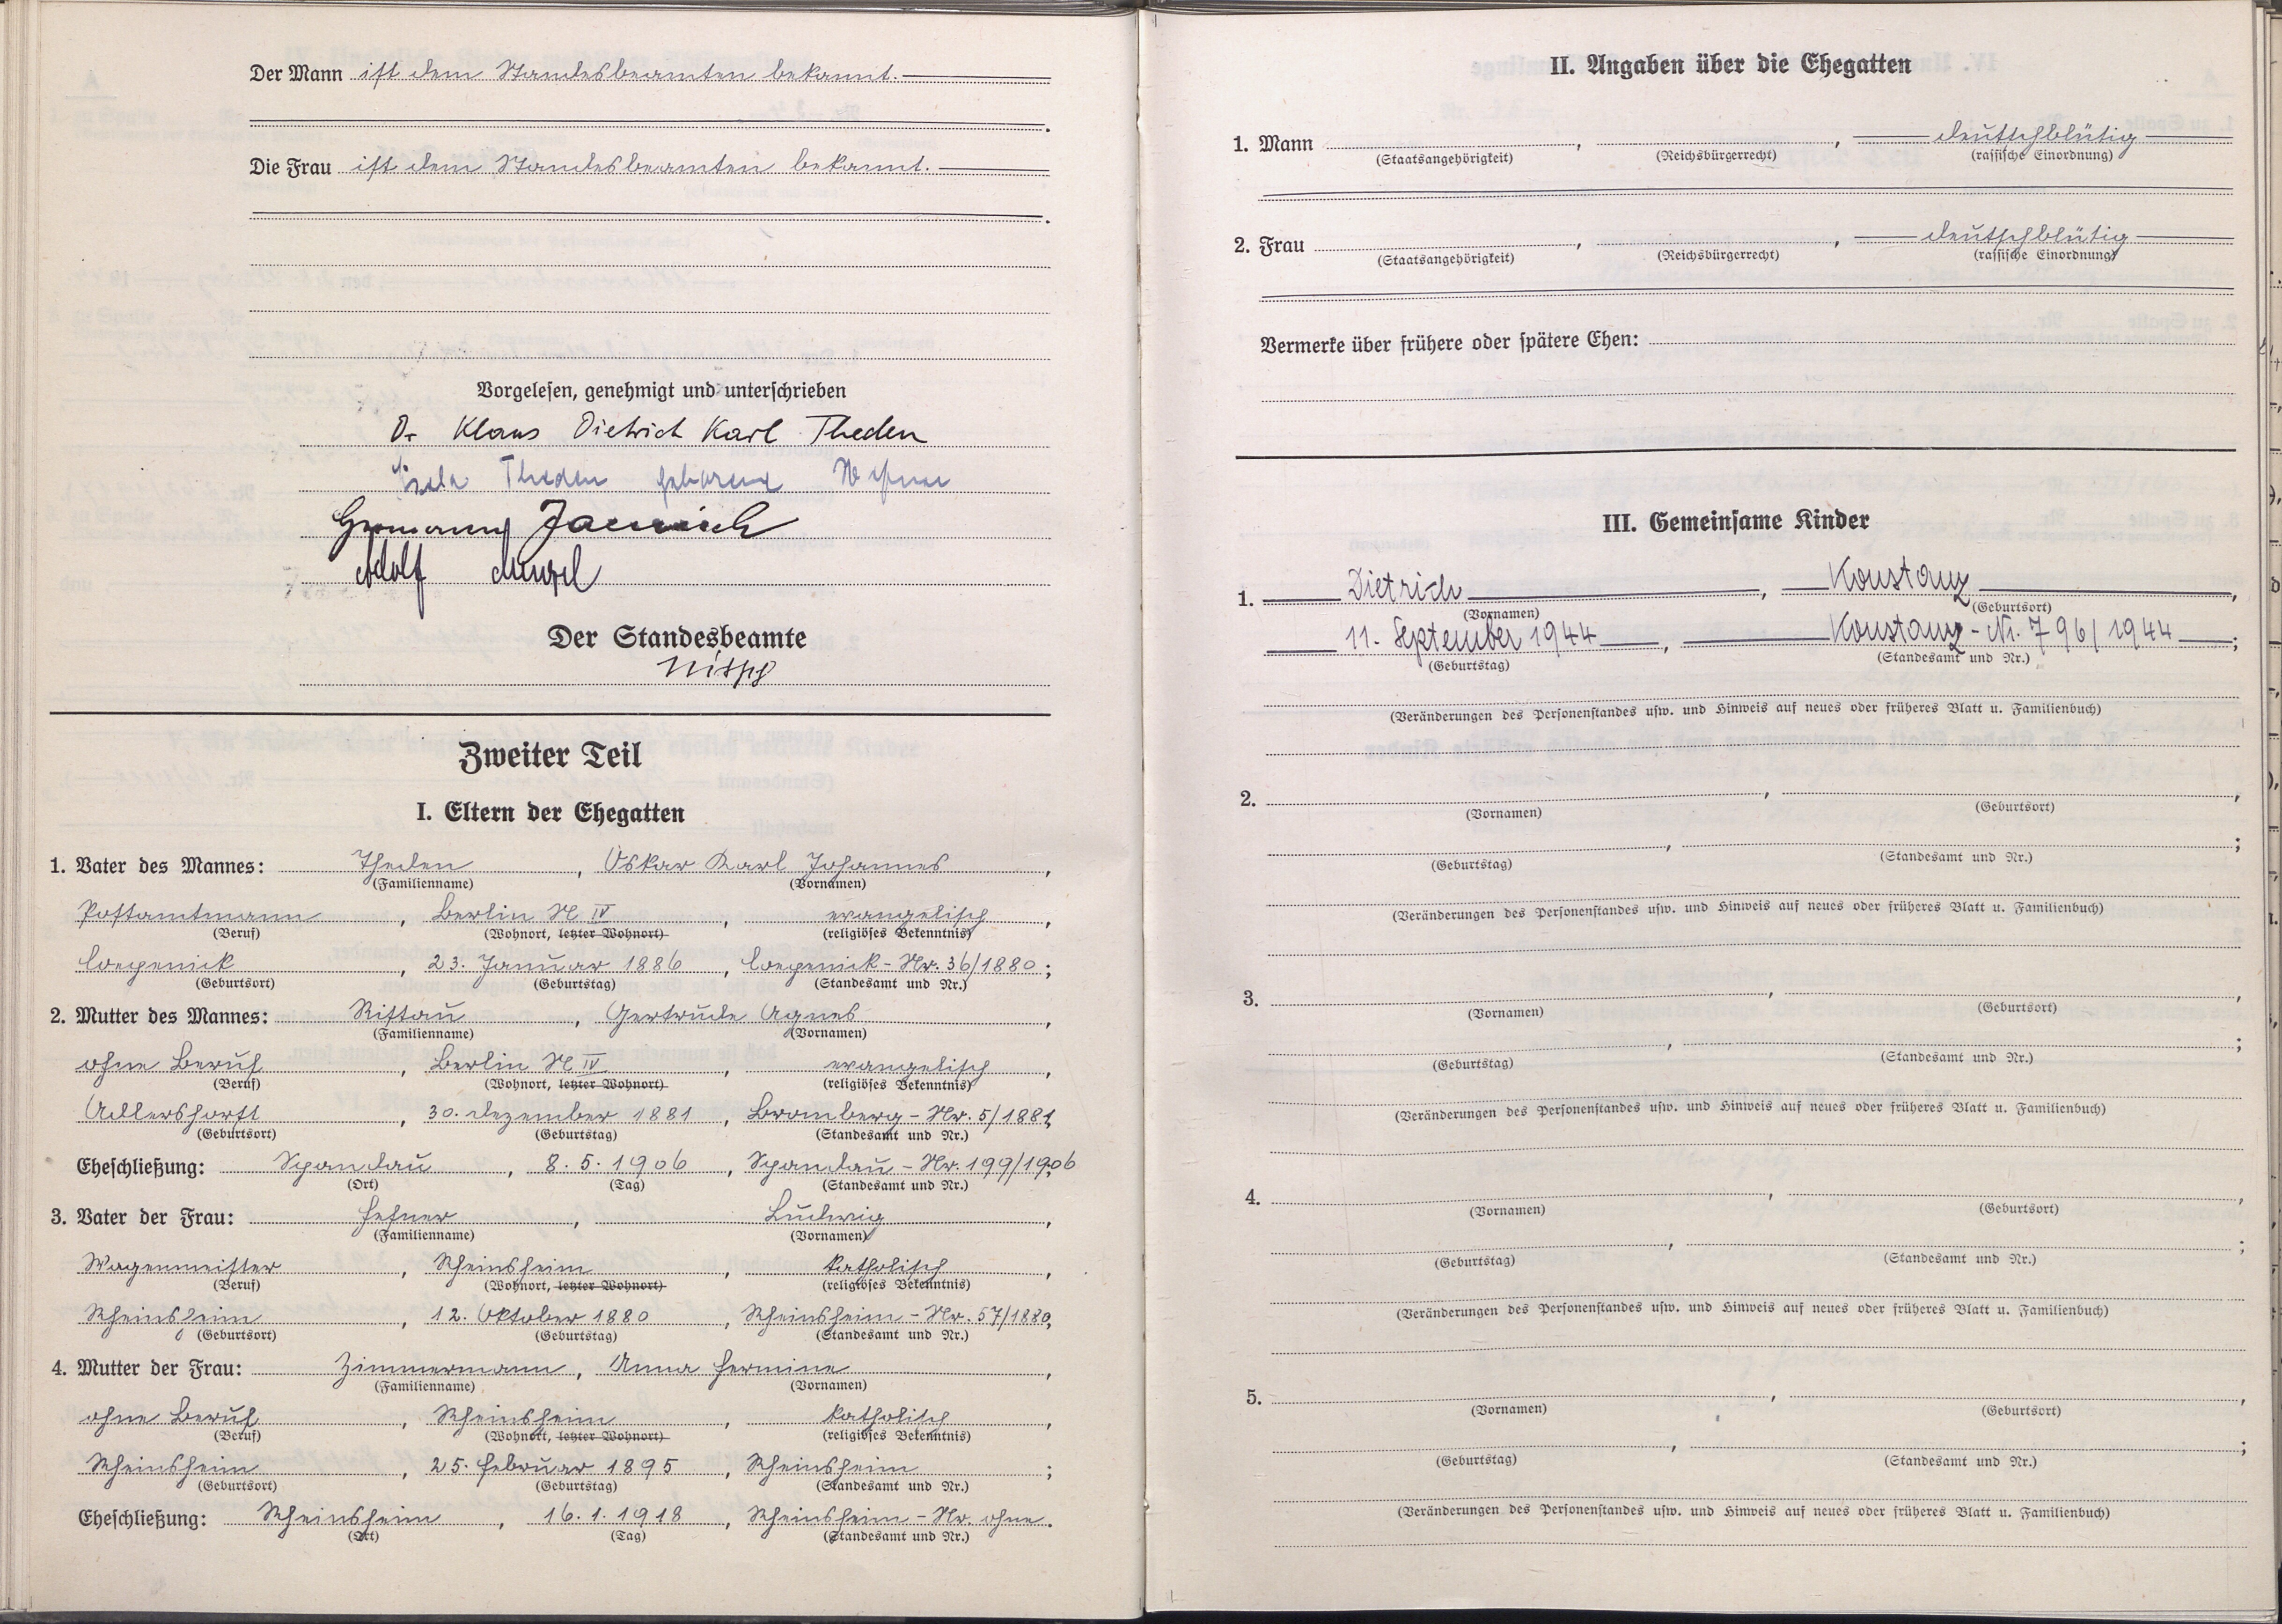 Der Mann ist dem Standesbeamten bekannt.
Die Frau ist dem Standesbeamten bekannt.
Vorgelesen, genehmigt und unterschrieben
Dr Klaus Dietrich Karl Theden
Theden geborene
Adolf
Der Standesbeamte
Zweiter Teil
I. Eltern der Ehegatten
1. Vater des Mannes: Theden, Oskar Karl Johannes,
(Familienname) (Vornamen)
Postamtmann, Berlin N IV, evangelisch,
(Beruf) (Wohnort, letzter Wohnort) (religiöses Bekenntnis)
Coepenick, 23. Januar 1886, Coepenick - Nr. 36/1880;
(Geburtsort) (Geburtstag) (Standesamt und Nr.)
2. Mutter des Mannes: Ristau, Gertrude Agnes,
(Familienname) (Vornamen)
ohne Beruf, Berlin N IV, evangelisch,
(Beruf) (Wohnort, letzter Wohnort) (religiöses Bekenntnis)
Adlershorst, 30. Dezember 1881, Bromberg - Nr. 5/1881;
(Geburtsort) (Geburtstag) (Standesamt und Nr.)
Eheschließung: Spandau, 8. 5. 1906, Spandau - Nr. 199/1906
(Ort) (Tag) (Standesamt und Nr.)
3. Vater der Frau: Hefner, Ludwig,
(Familienname) (Vornamen)
Wagenmeister, Rheinsheim, katholisch,
(Beruf) (Wohnort, letzter Wohnort) (religiöses Bekenntnis)
Rheinsheim, 12. Oktober 1880, Rheinsheim - Nr. 57/1880;
(Geburtsort) (Geburtstag) (Standesamt und Nr.)
4. Mutter der Frau: Zimmermann, Anna Hermine,
(Familienname) (Vornamen)
ohne Beruf, Rheinsheim, katholisch,
(Beruf) (Wohnort, letzter Wohnort) (religiöses Bekenntnis)
Rheinsheim, 25. Februar 1895, Rheinsheim;
(Geburtsort) (Geburtstag) (Standesamt und Nr.)
Eheschließung: Rheinsheim, 16. 1. 1918, Rheinsheim - Nr. ohne.
(Ort) (Tag) (Standesamt und Nr.)
II. Angaben über die Ehegatten
1. Mann , , deutschblütig
(Staatsangehörigkeit) (Reichsbürgerrecht) (rassische Einordnung)
2. Frau , , deutschblütig
(Staatsangehörigkeit) (Reichsbürgerrecht) (rassische Einordnung)
Vermerke über frühere oder spätere Ehen:
III. Gemeinsame Kinder
1. Dietrich, Konstanz,
(Vornamen) (Geburtsort)
11. September 1944, Konstanz - Nr. 796/1944;
(Geburtstag) (Standesamt und Nr.)
(Veränderungen des Personenstandes usw. und Hinweis auf neues oder früheres Blatt u. Familienbuch)
2. , ,
(Vornamen) (Geburtsort)
, ;
(Geburtstag) (Standesamt und Nr.)
(Veränderungen des Personenstandes usw. und Hinweis auf neues oder früheres Blatt u. Familienbuch)
3. , ,
(Vornamen) (Geburtsort)
, ;
(Geburtstag) (Standesamt und Nr.)
(Veränderungen des Personenstandes usw. und Hinweis auf neues oder früheres Blatt u. Familienbuch)
4. , ,
(Vornamen) (Geburtsort)
, ;
(Geburtstag) (Standesamt und Nr.)
(Veränderungen des Personenstandes usw. und Hinweis auf neues oder früheres Blatt u. Familienbuch)
5. , ,
(Vornamen) (Geburtsort)
, ;
(Geburtstag) (Standesamt und Nr.)
(Veränderungen des Personenstandes usw. und Hinweis auf neues oder früheres Blatt u. Familienbuch)